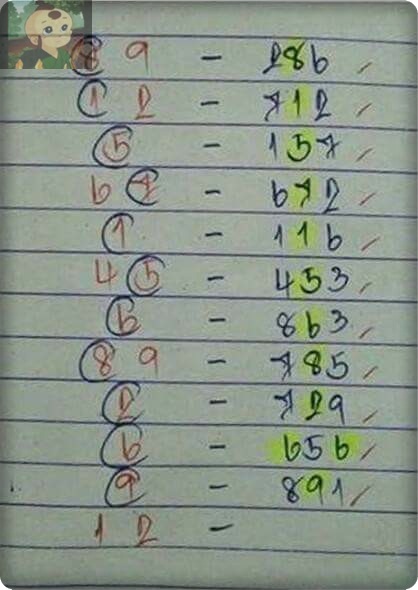 8 9 - 286
1 2 - 712
5 - 157
6 7 - 672
1 - 116
4 5 - 453
6 - 863
8 9 - 785
2 - 729
6 - 656
9 - 891
1 2 -